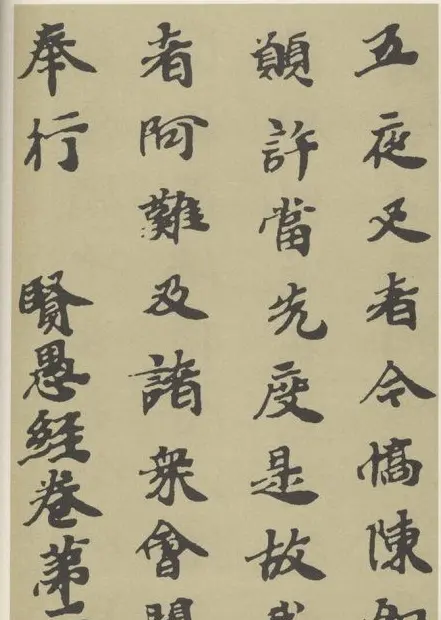 五夜叉者今憍陳
願許當先度是故
者阿難及諸衆會
奉行　賢愚經卷第